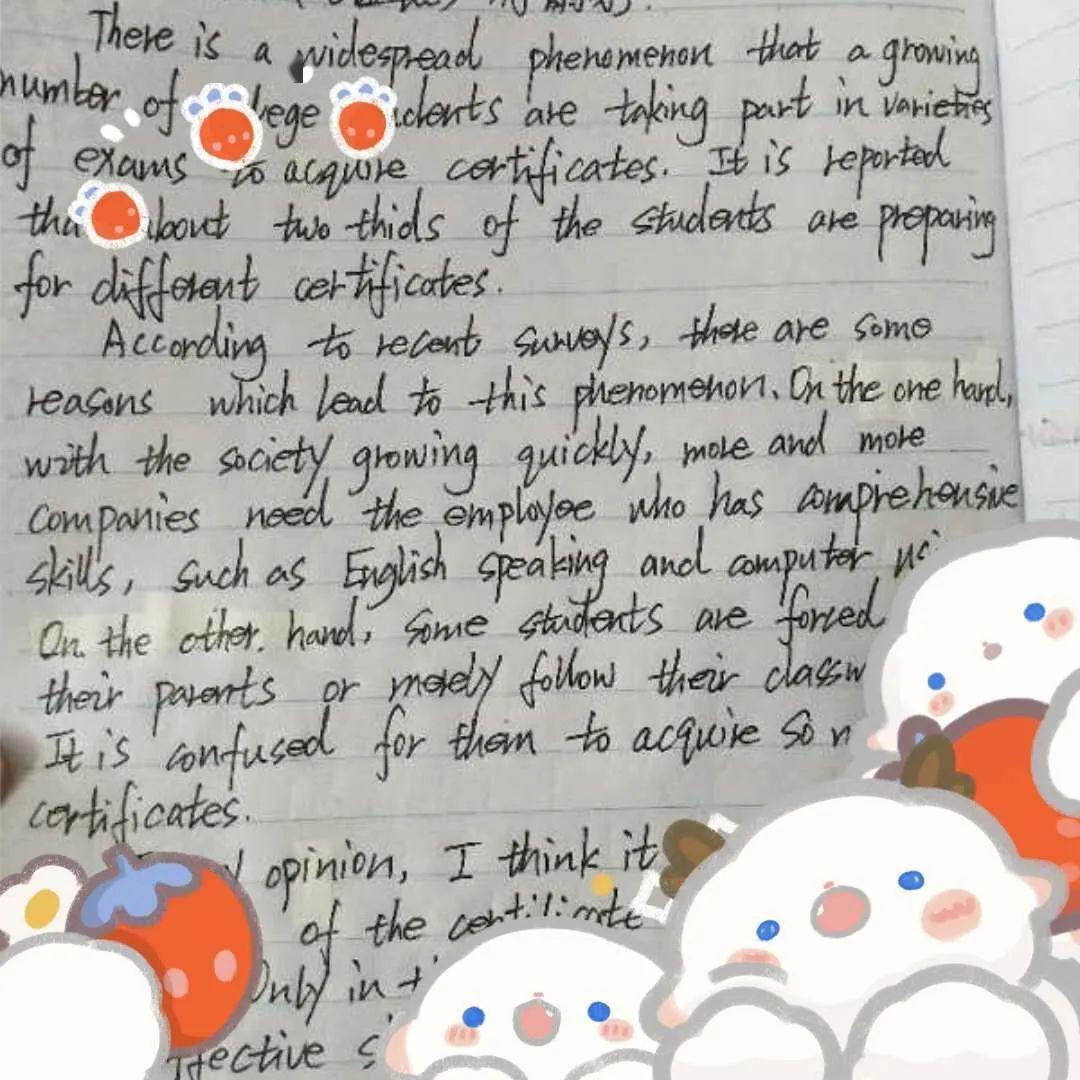 There is a widespread phenomenon that a growing
number of are taking part in varieties
of exams to acquire certificates. It is reported
about two thids of the students are preparing
for different certificates.
According to recent surveys, there are some
reasons which lead to this phenomenon. On the one hand,
with the society growing quickly, more and more
companies need the employee who has comprehensive
skills, such as English speaking and computer
On the other. hand, some students are forced
their parents or merely follow their
It is confused for them to acquire so
certificates.
opinion, I think it
of the
Only in